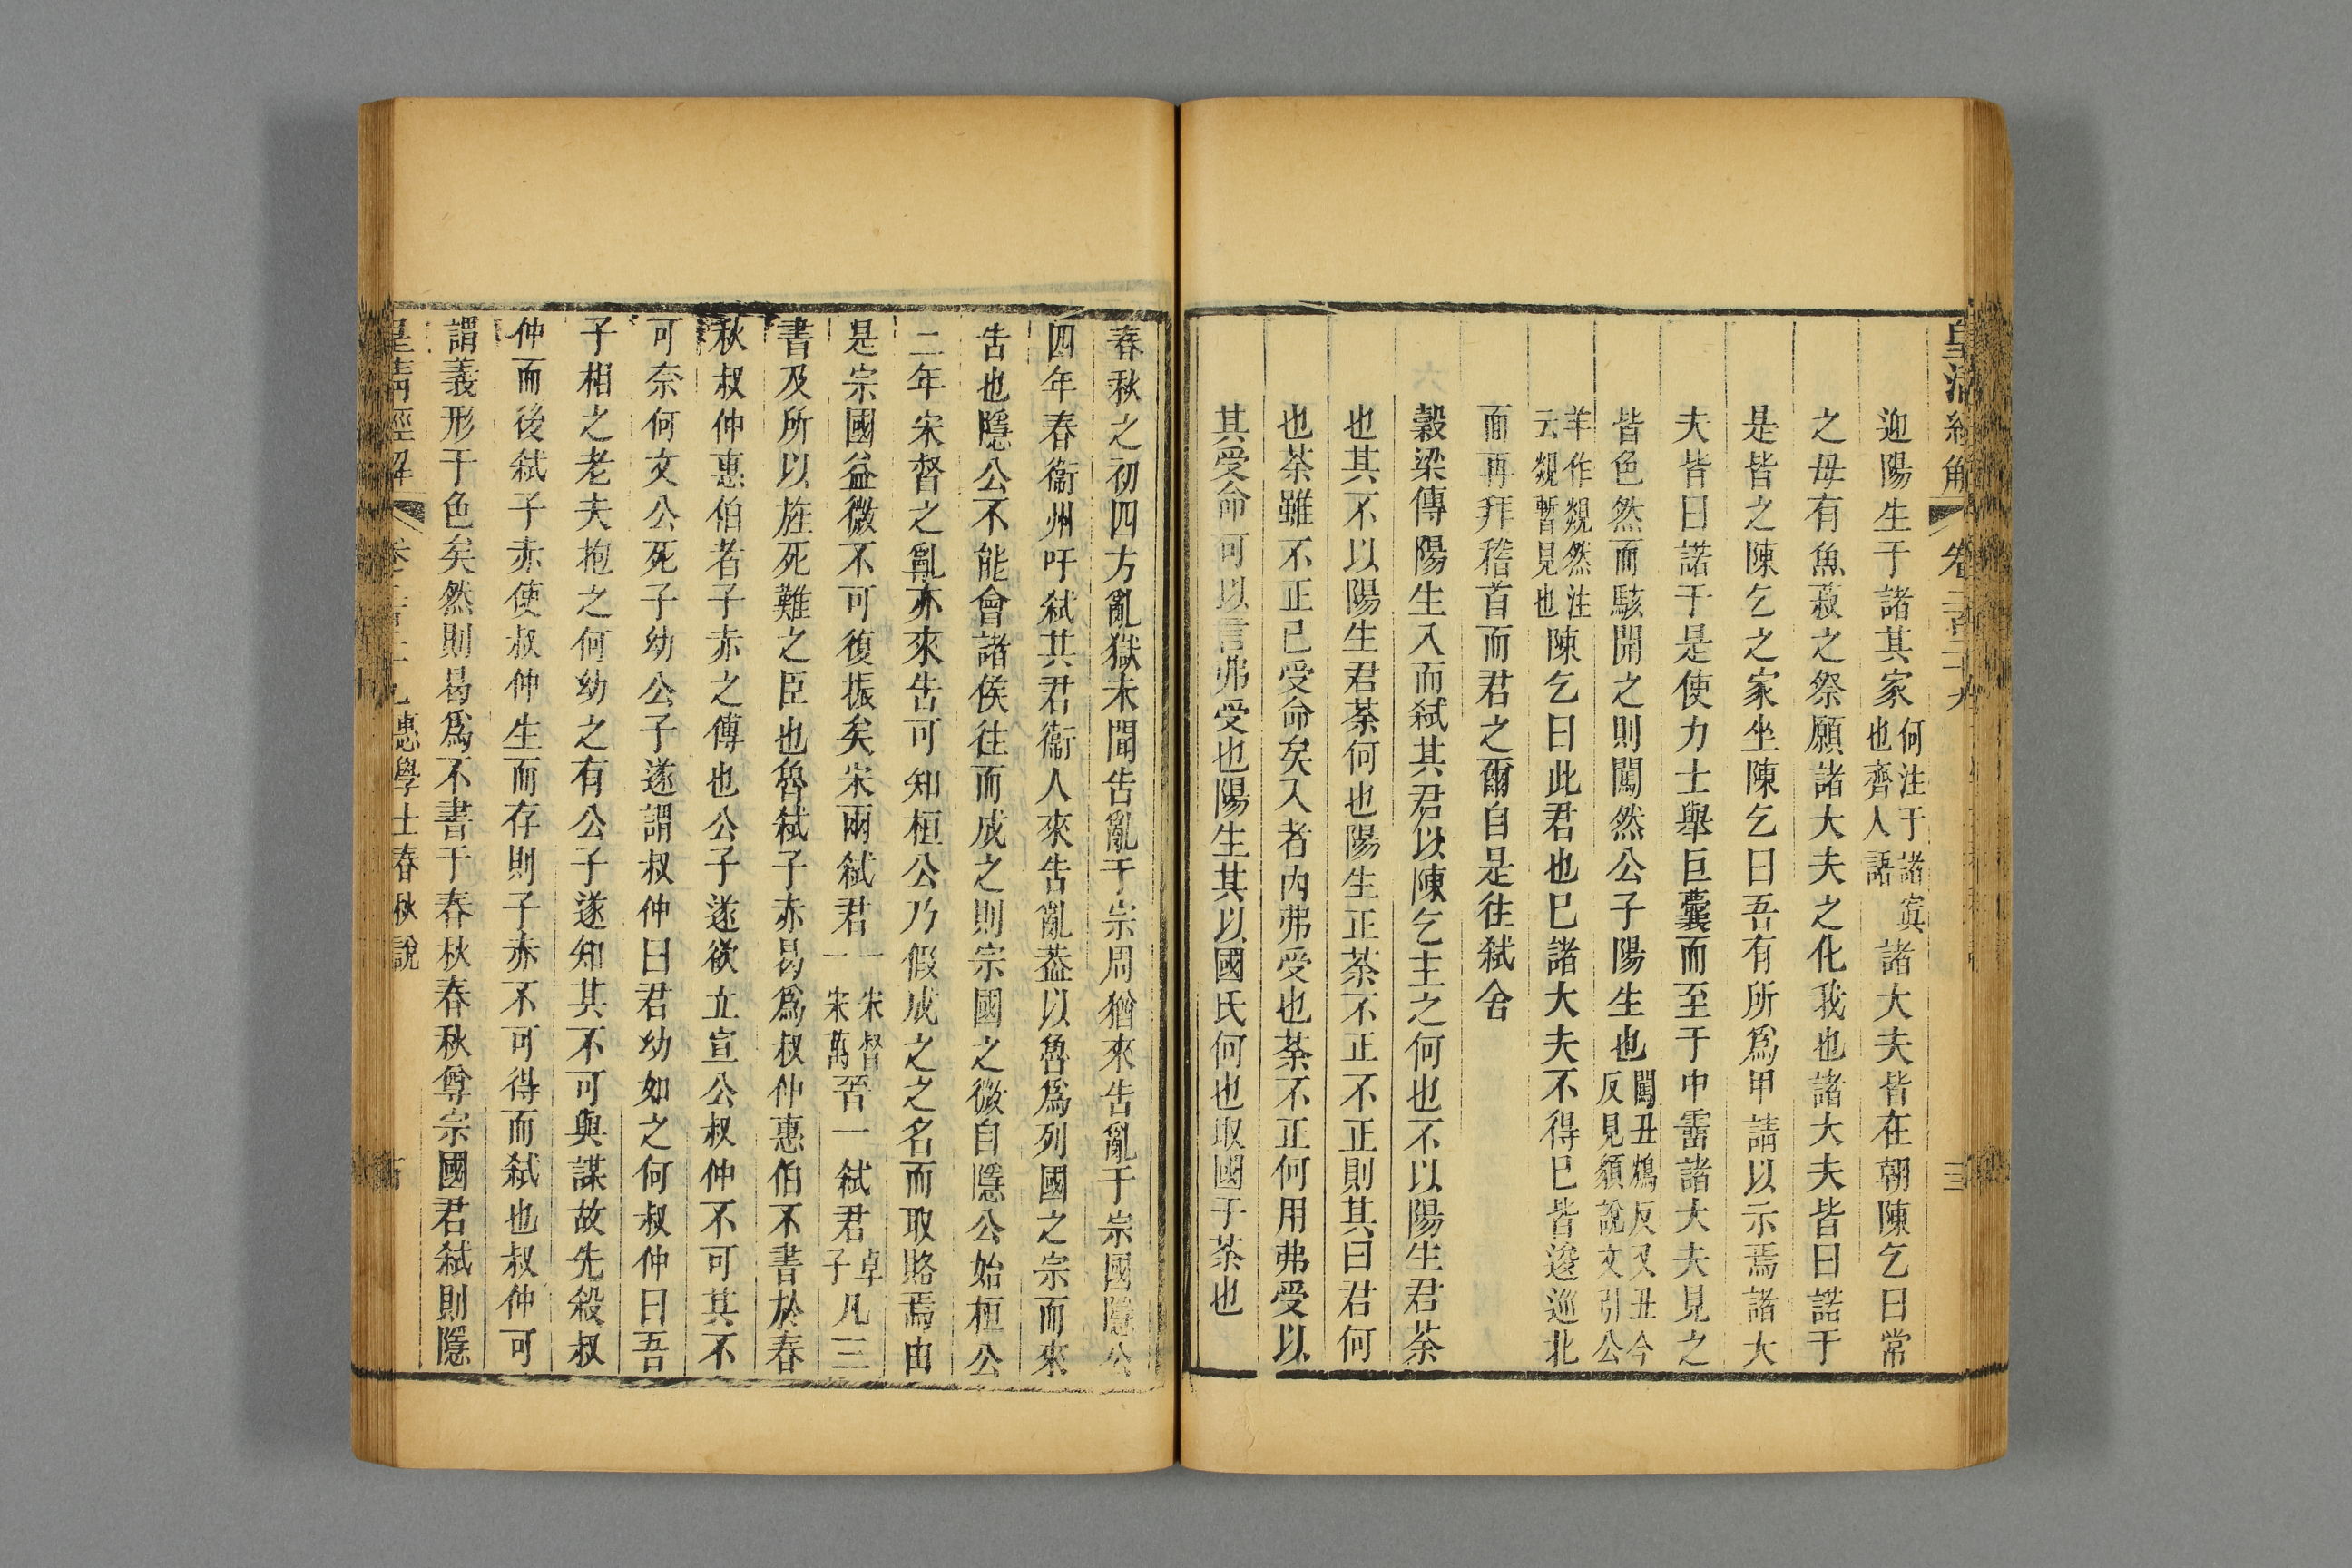 皇清經解 卷二百三十九 三
迎陽生于諸其家何注于諸寘也齊人語諸大夫皆在朝陳乞曰常
之母有魚菽之祭願諸大夫之化我也諸大夫皆曰諾于
是皆之陳乞之家坐陳乞曰吾有所爲甲請以示焉諸大
夫皆曰諾于是使力士舉巨囊而至于中霤諸大夫見之
皆色然而駭開之則闖然公子陽生也闖丑鴆反又丑今反見頟說文引公
羊作覢然注云覢暫見也陳乞曰此君也已諸大夫不得已皆逡巡北
面再拜稽首而君之爾自是往弑舍
穀梁傳陽生入而弑其君以陳乞主之何也不以陽生君荼
也其不以陽生君荼何也陽生正荼不正不正則其曰君何
也荼雖不正已受命矣入者內弗受也荼不正何用弗受以
其受命可以言弗受也陽生其以國氏何也取國于荼也
春秋之初四方亂獄未聞告亂于宗周猶來告亂于宗國隱公
四年春衞州吁弑其君衞人來告亂葢以魯爲列國之宗而來
告也隱公不能會諸侯往而成之則宗國之微自隱公始桓公
二年宋督之亂亦來告可知桓公乃假成之之名而取賂焉由
是宗國益微不可復振矣宋兩弑君一宋督一宋萬晉一弑君卓子凡三
書及所以旌死難之臣也魯弑子赤曷爲叔仲惠伯不書於春
秋叔仲惠伯者子赤之傅也公子遂欲立宣公叔仲不可其不
可奈何文公死子幼公子遂謂叔仲曰君幼如之何叔仲曰吾
子相之老夫抱之何幼之有公子遂知其不可與謀故先殺叔
仲而後弑子赤使叔仲生而存則子赤不可得而弑也叔仲可
謂義形于色矣然則曷爲不書于春秋春秋尊宗國君弑則隱
皇清經解 惠學士春秋說